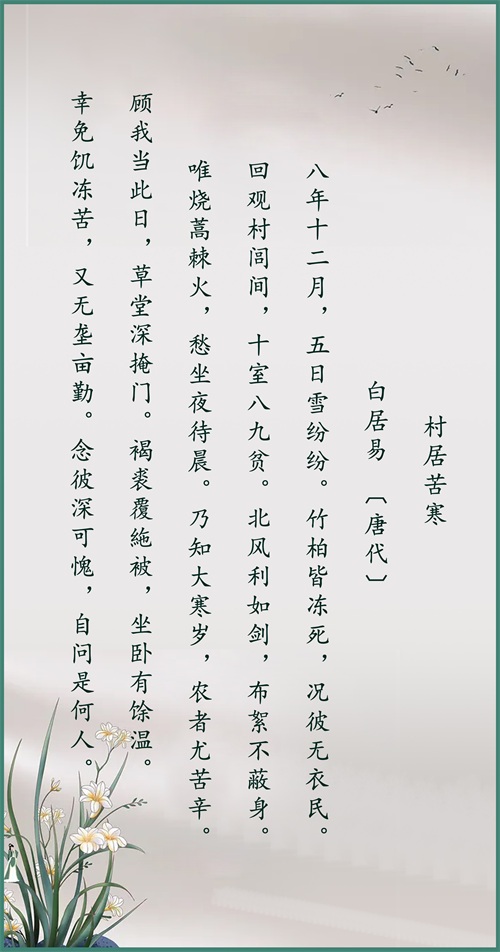 村居苦寒
白居易 〔唐代〕
八年十二月，五日雪纷纷。竹柏皆冻死，况彼无衣民。
回观村闾间，十室八九贫。北风利如剑，布絮不蔽身。
唯烧蒿棘火，愁坐夜待晨。乃知大寒岁，农者尤苦辛。
顾我当此日，草堂深掩门。褐裘覆絁被，坐卧有馀温。
幸免饥冻苦，又无垄亩勤。念彼深可愧，自问是何人。